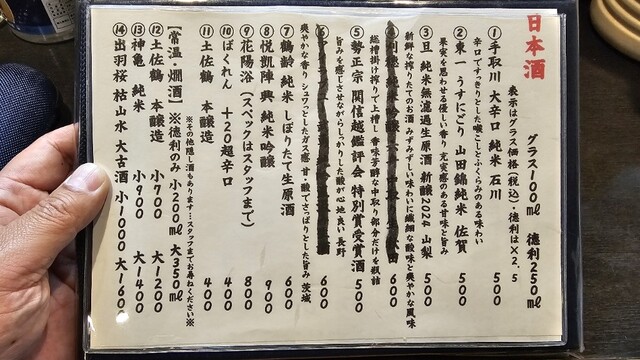 日本酒
グラス100ml 徳利250ml
表示はグラス価格(税込)・徳利は×2.5
①手取川 大辛口 純米 石川 500
辛口ですっきりとした喉ごしとふくらみのある味わい
②東一 うすにごり 山田錦純米 佐賀 500
果実を思わせる優しい香り 充実感のある甘味と旨み
③旦 純米無濾過生原酒 新醸2024 山梨 500
新鮮な搾りたてのお酒 みずみずしい味わいに繊細な酸味と爽やかな風味
600
総槽掛け搾りで上槽し 香味芳醇な中取り部分だけを瓶詰
⑤勢正宗 関信越鑑評会 特別賞受賞酒 500
旨みを感じさせながらしっかりした酸が心地良い 長野
600
爽やかな香り シュワッとしたガス感 甘・酸でさっぱりとした旨み 茨城
⑦鶴齢 純米 しぼりたて生原酒 600
⑧悦凱陣 興 純米吟醸 900
⑨花陽浴(スペックはスタッフまで) 800
⑩ばくれん +20超辛口 400
⑪土佐鶴 本醸造 400
※その他隠し酒もあります…スタッフまでお尋ねください※
【常温・燗酒】※徳利のみ 小200ml 大350ml
⑫土佐鶴 本醸造 小700 大1200
⑬神亀 純米 小900 大1400
⑭出羽桜 枯山水 大古酒 小1000 大1600